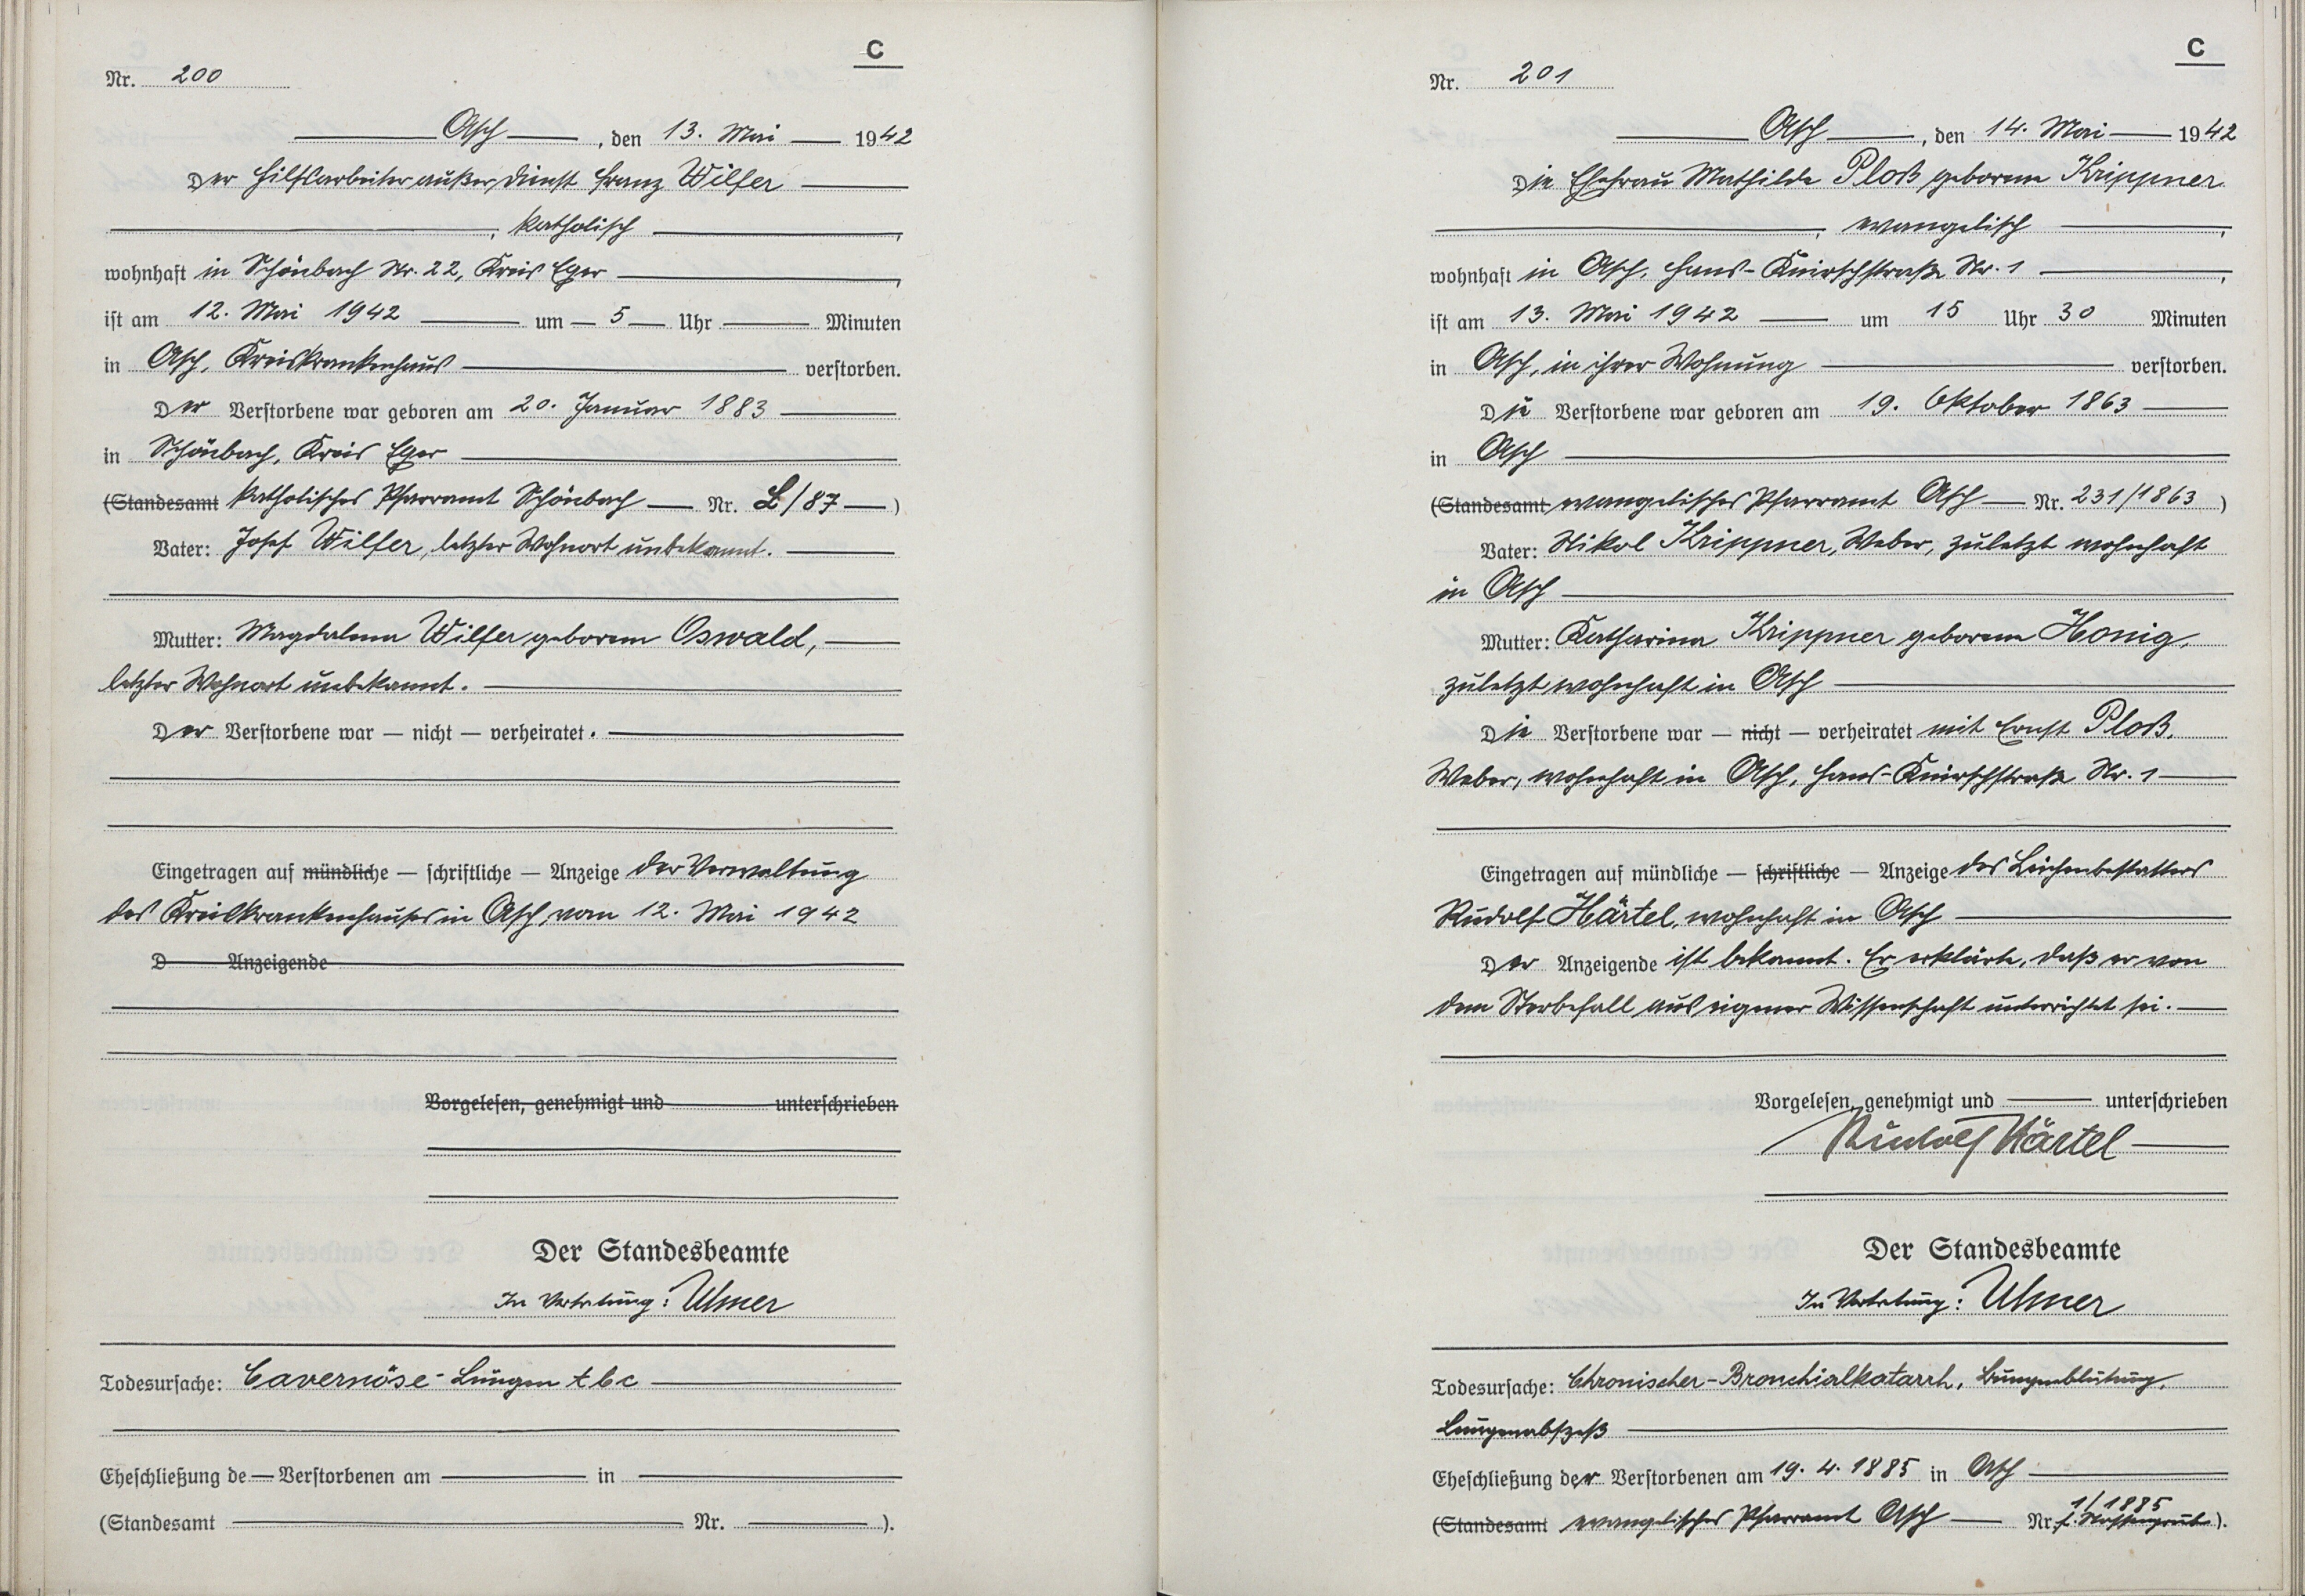 C
Nr. 200
Asch, den 13. Mai 1942
Der Hilfsarbeiter außer Dienst Franz Wilfer
, katholisch,
wohnhaft in Schönbach Nr. 22, Kreis Eger,
ist am 12. Mai 1942 um 5 Uhr Minuten
in Asch, Kreiskrankenhaus verstorben.
Der Verstorbene war geboren am 20. Januar 1883
in Schönbach, Kreis Eger
(Standesamt katholisches Pfarramt Schönbach Nr. L/87)
Vater: Josef Wilfer, letzter Wohnort unbekannt.
Mutter: Magdalena Wilfer geborene Oswald,
letzter Wohnort unbekannt.
Der Verstorbene war — nicht — verheiratet.
Eingetragen auf mündliche — schriftliche — Anzeige der Verwaltung
des Kreiskrankenhauses in Asch, vom 12. Mai 1942
D Anzeigende
Vorgelesen, genehmigt und unterschrieben
Der Standesbeamte
In Vertretung: Ulmer
Todesursache: Cavernöse-Lungen tbc
Eheschließung de Verstorbenen am in
(Standesamt Nr. ).
C
Nr. 201
Asch, den 14. Mai 1942
Die Ehefrau Mathilde Ploß geborene Krippner
, evangelisch,
wohnhaft in Asch, Hans-Knirschstraße Nr. 1,
ist am 13. Mai 1942 um 15 Uhr 30 Minuten
in Asch, in ihrer Wohnung verstorben.
Die Verstorbene war geboren am 19. Oktober 1863
in Asch
(Standesamt evangelisches Pfarramt Asch Nr. 231/1863)
Vater: Nikol Krippner, Weber, zuletzt wohnhaft
in Asch
Mutter: Katharina Krippner geborene Honig,
zuletzt wohnhaft in Asch
Die Verstorbene war — nicht — verheiratet mit Ernst Ploß,
Weber, wohnhaft in Asch, Hans-Knirschstraße Nr. 1
Eingetragen auf mündliche — schriftliche — Anzeige des Leichenbestatters
Rudolf Härtel, wohnhaft in Asch
Der Anzeigende ist bekannt. Er erklärte, daß er von
dem Sterbefall aus eigener Wissenschaft unterrichtet sei.
Vorgelesen, genehmigt und unterschrieben
Rudolf Härtel
Der Standesbeamte
In Vertretung: Ulmer
Todesursache: Chronischer-Bronchialkatarrh, Lungenblutung,
Lungenabszeß
Eheschließung der Verstorbenen am 19. 4. 1885 in Asch
1/1885
(Standesamt evangelisches Pfarramt Asch Nr. f. Nassengrub).